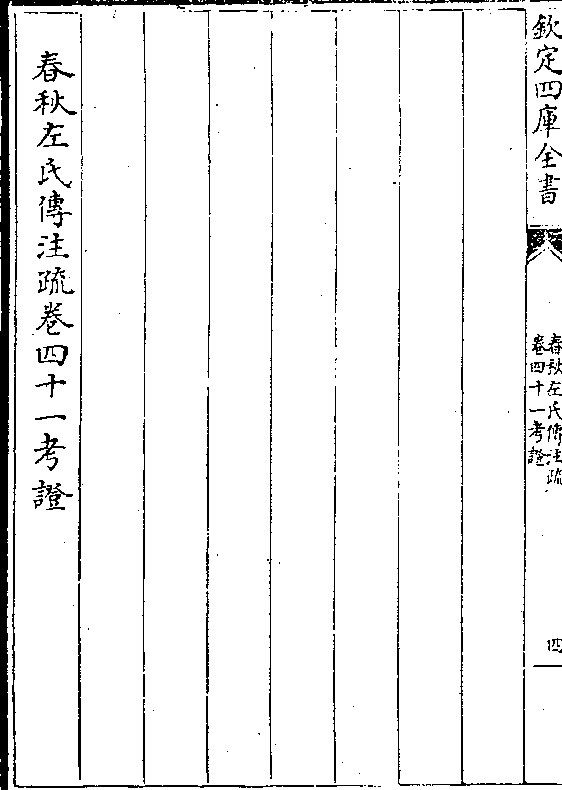 欽定四庫全書
春秋左氏傳注疏
卷四十一考證
四
春秋左氏傳注疏卷四十一考證